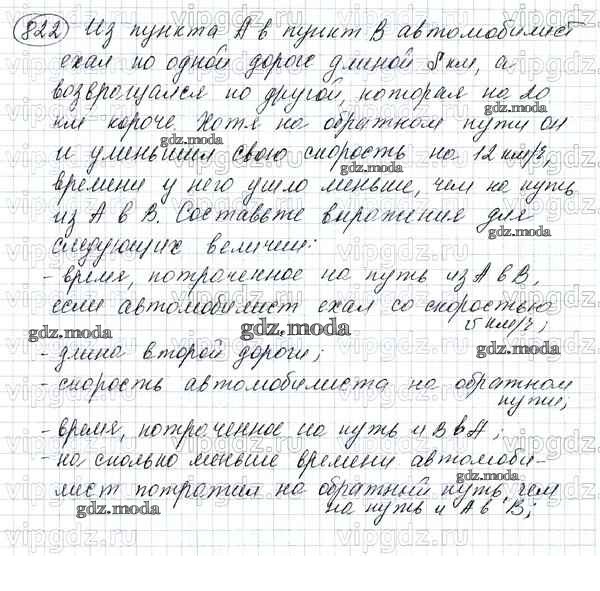 822 Из пункта А в пункт В автомобилист
ехал по одной дороге длиной S км, а
возвращался по другой, которая на 20
км короче. Хотя на обратном пути он
и уменьшил свою скорость на 12 км/ч,
времени у него ушло меньше, чем на путь
из А в В. Составьте выражения для
следующих величин:
- время, потраченное на путь из А в В,
если автомобилист ехал со скоростью
км/ч;
- длина второй дороги;
- скорость автомобилиста на обратном
пути;
- время, потраченное на путь и В в А;
- на сколько меньше времени автомоби-
лист потратил на обратный путь, чем
на путь и А в В;